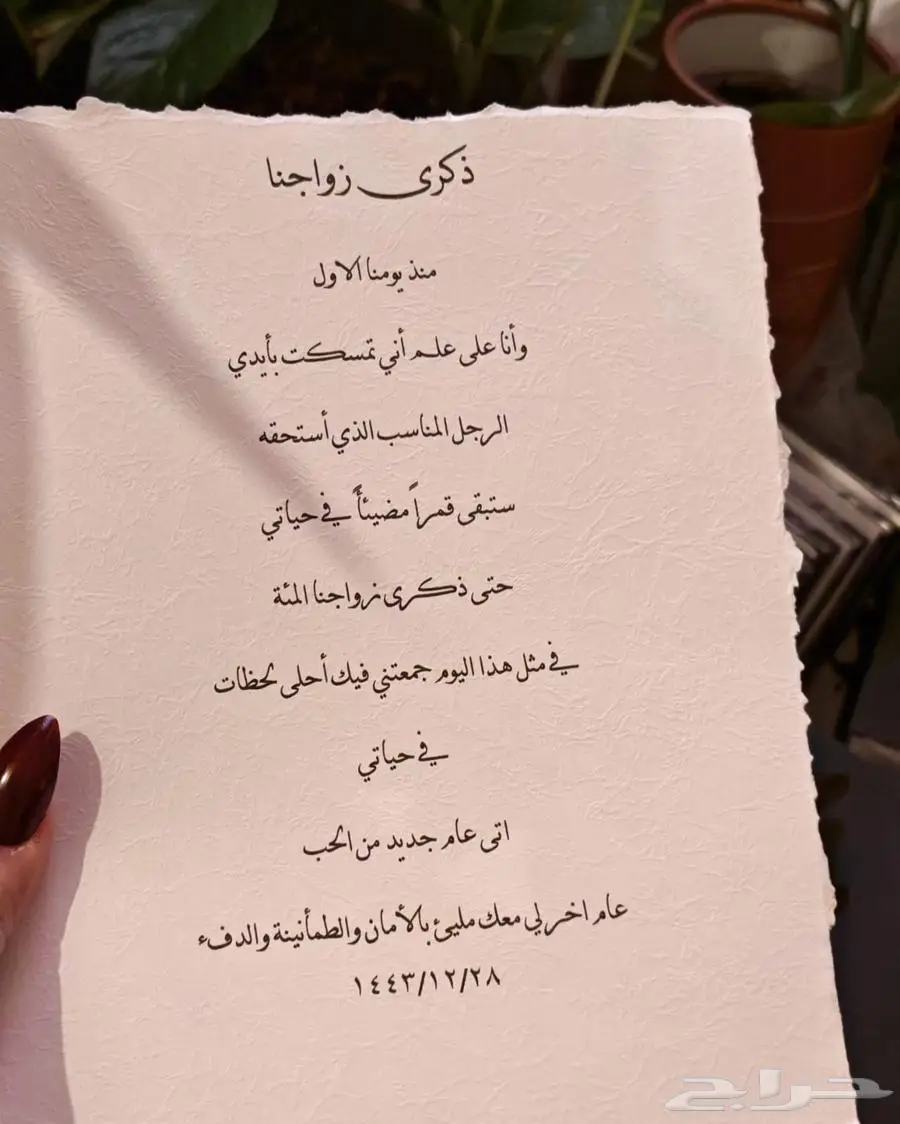 ذكرى زواجنا
منذ يومنا الاول
وأنا على علم أني تمسكت بأيدي
الرجل المناسب الذي أستحقه
ستبقى قمراً مضيئاً في حياتي
حتى ذكرى زواجنا المئة
في مثل هذا اليوم جمعتني فيك أحلى لحظات
في حياتي
اتى عام جديد من الحب
عام اخر لي معك مليئ بالأمان والطمأنينة والدفء
١٤٤٣/١٢/٢٨
حراج